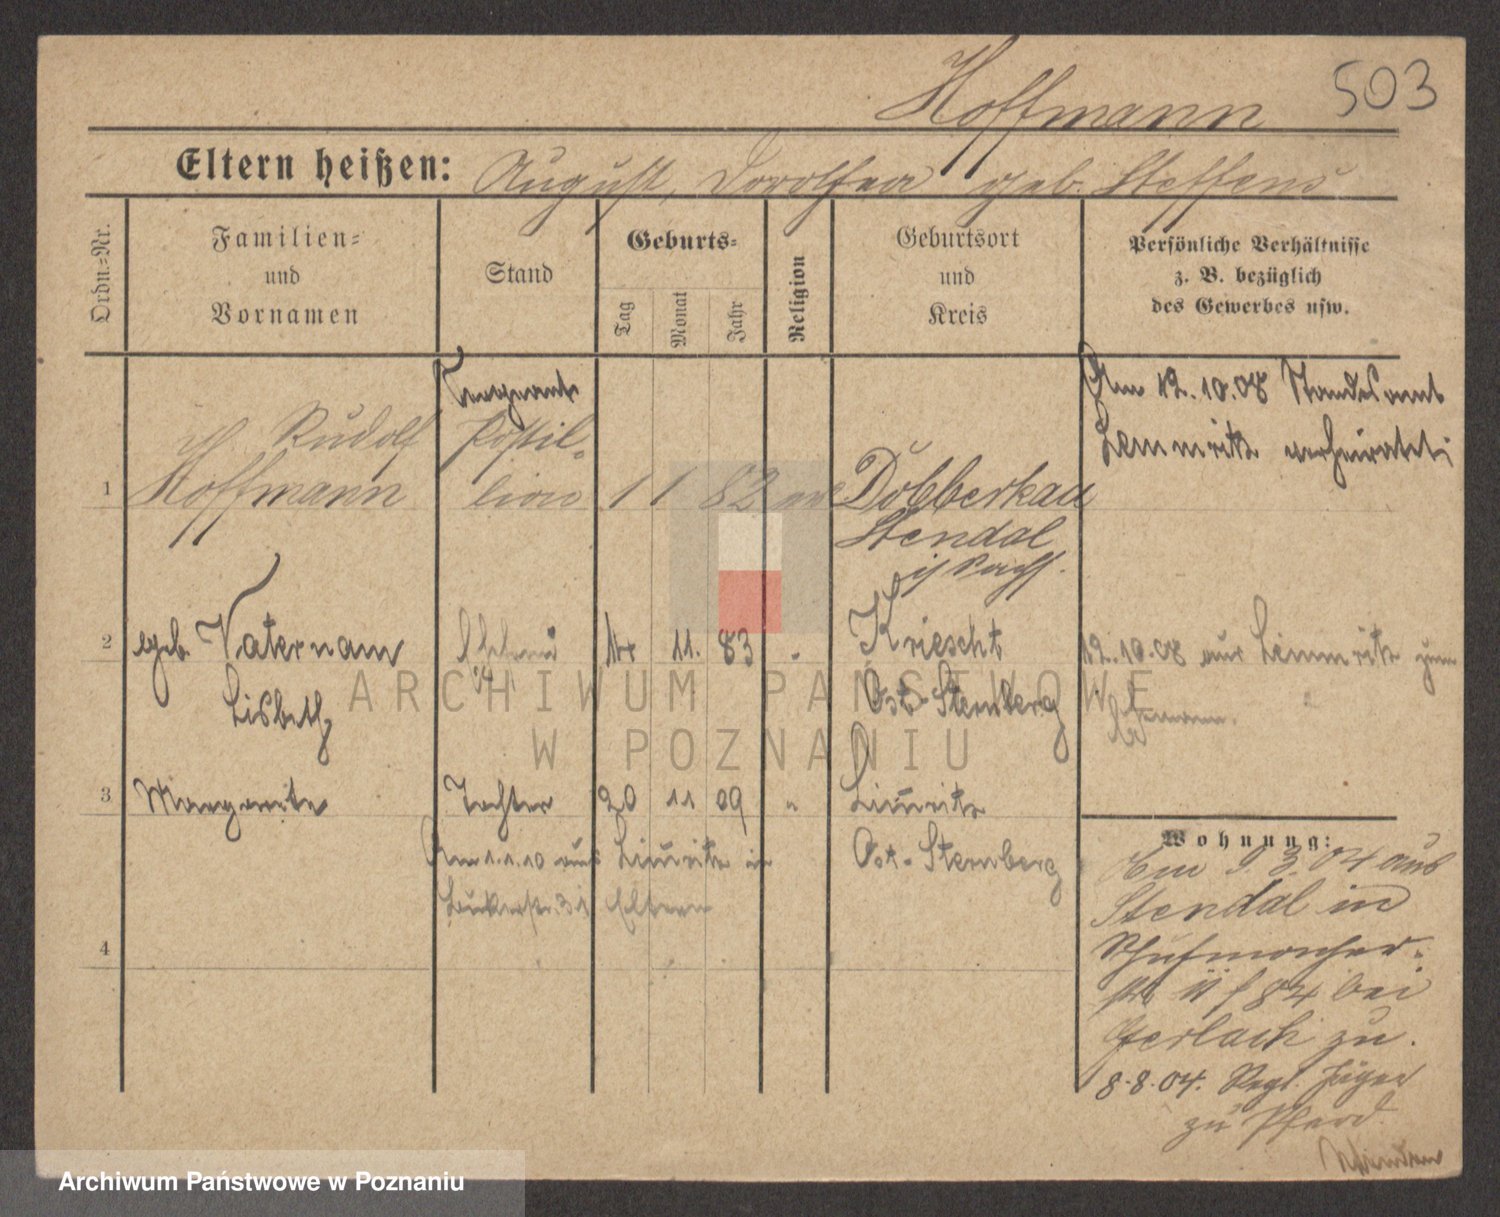 Hoffmann 503
Eltern heißen: August, Dorothea geb. Steffens
Ordn.=Nr.
Familien=
und
Vornamen
Stand
Geburts=
Tag
Monat
Jahr
Religion
Geburtsort
und
Kreis
Persönliche Verhältnisse
z. B. bezüglich
des Gewerbes usw.
Sergeant
Am 12.10.08 Standesamt
Rudolf
Postil-
verheiratet
1 Hoffmann
lion
1 1 82
Dobberkau
Stendal
2 geb. Vaternam
14 11. 83 "
Kriescht
12.10.08 aus zum
Lisbeth
Ost-Sternberg
Ehemann.
3 Margarete Tochter 20 11 09 " Limritz
Am 1.1.10 aus Limritz in
Ost-Sternberg
Eltern
4
Wohnung:
Am 9.3.04 aus
Stendal in
84 bei
Gerlach zu.
8.8.04. Regt. Jäger
zu Pferd.
ARCHIWUM PAŃSTWOWE
W POZNANIU
Archiwum Państwowe w Poznaniu